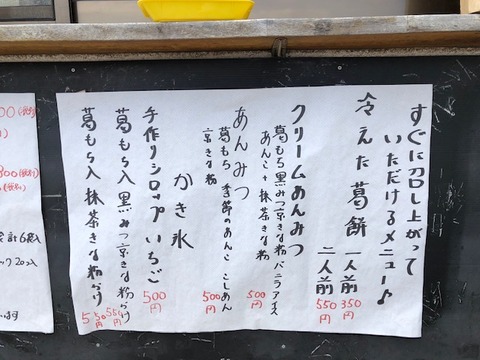 すぐに召し上がって
いただけるメニュー♪
冷えた葛餅 一人前 350円
二人前 550円
クリームあんみつ
葛もち黒みつ京きな粉バニラアイス
あんこ+抹茶きな粉 500円
あんみつ
葛もち 季節のあんこ こしあん
京きな粉 500円
かき氷
手作りシロップ いちご 500円
葛もち入 黒みつ京きな粉がけ 550円
葛もち入 抹茶きな粉がけ 550円
計6袋入
20コ入
います